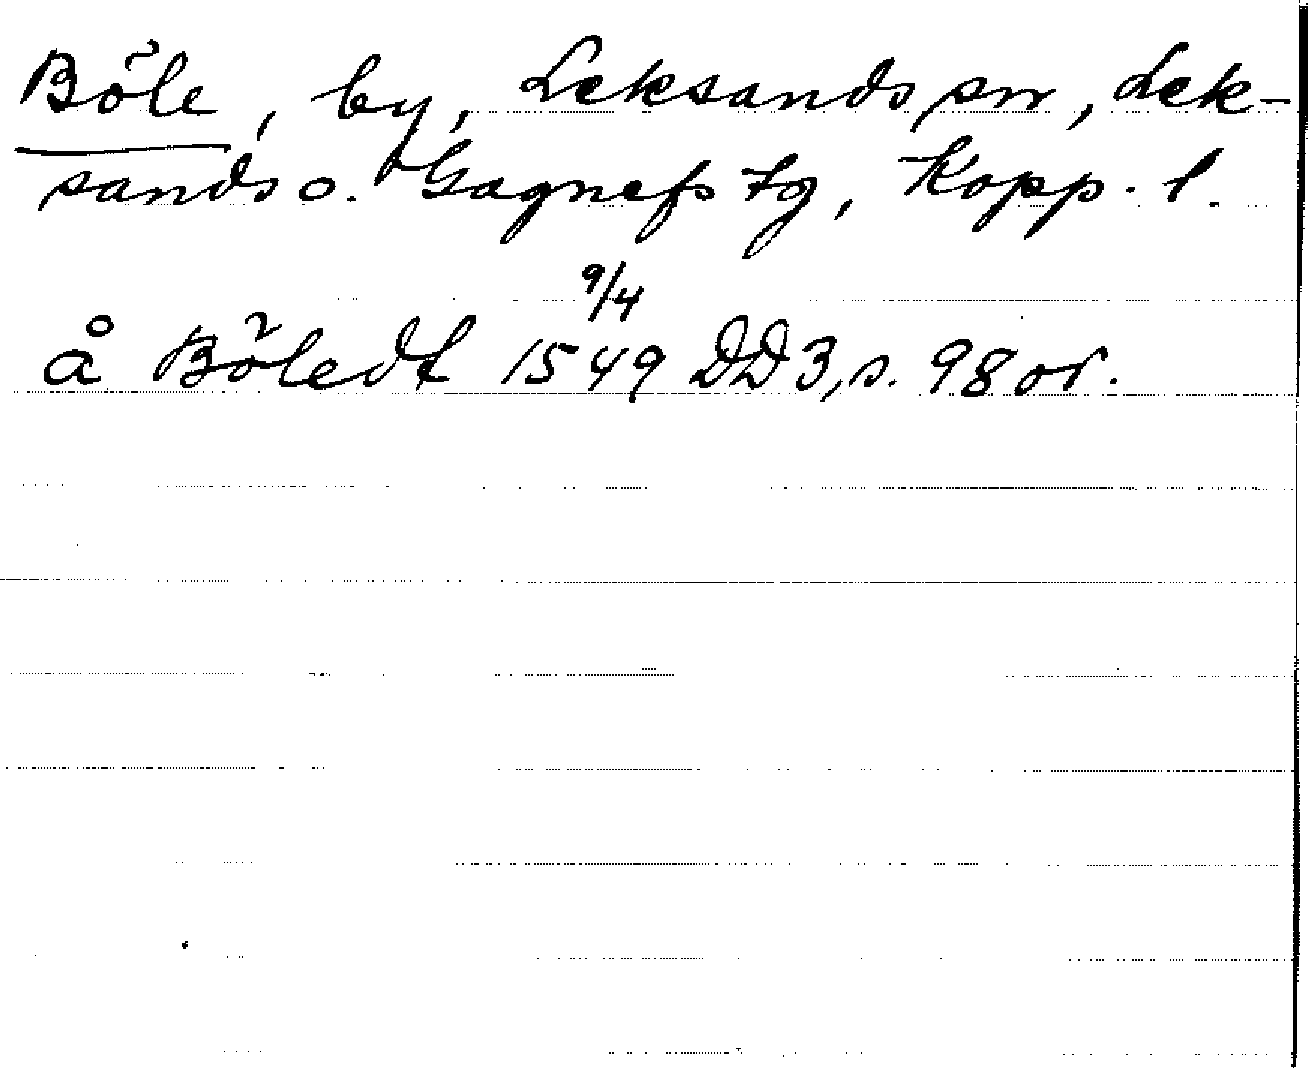 Böle, by, Leksands sn, Lek-
sands o. Gagnefs tg, Kopp. l.
å Böledt 9/4 1549 DD3, s. 98 or.